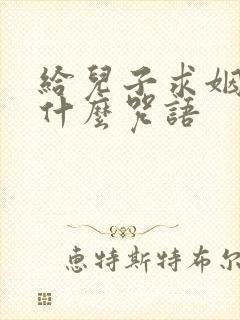 給兒子求姻
什麼咒語
惠特斯特布尔